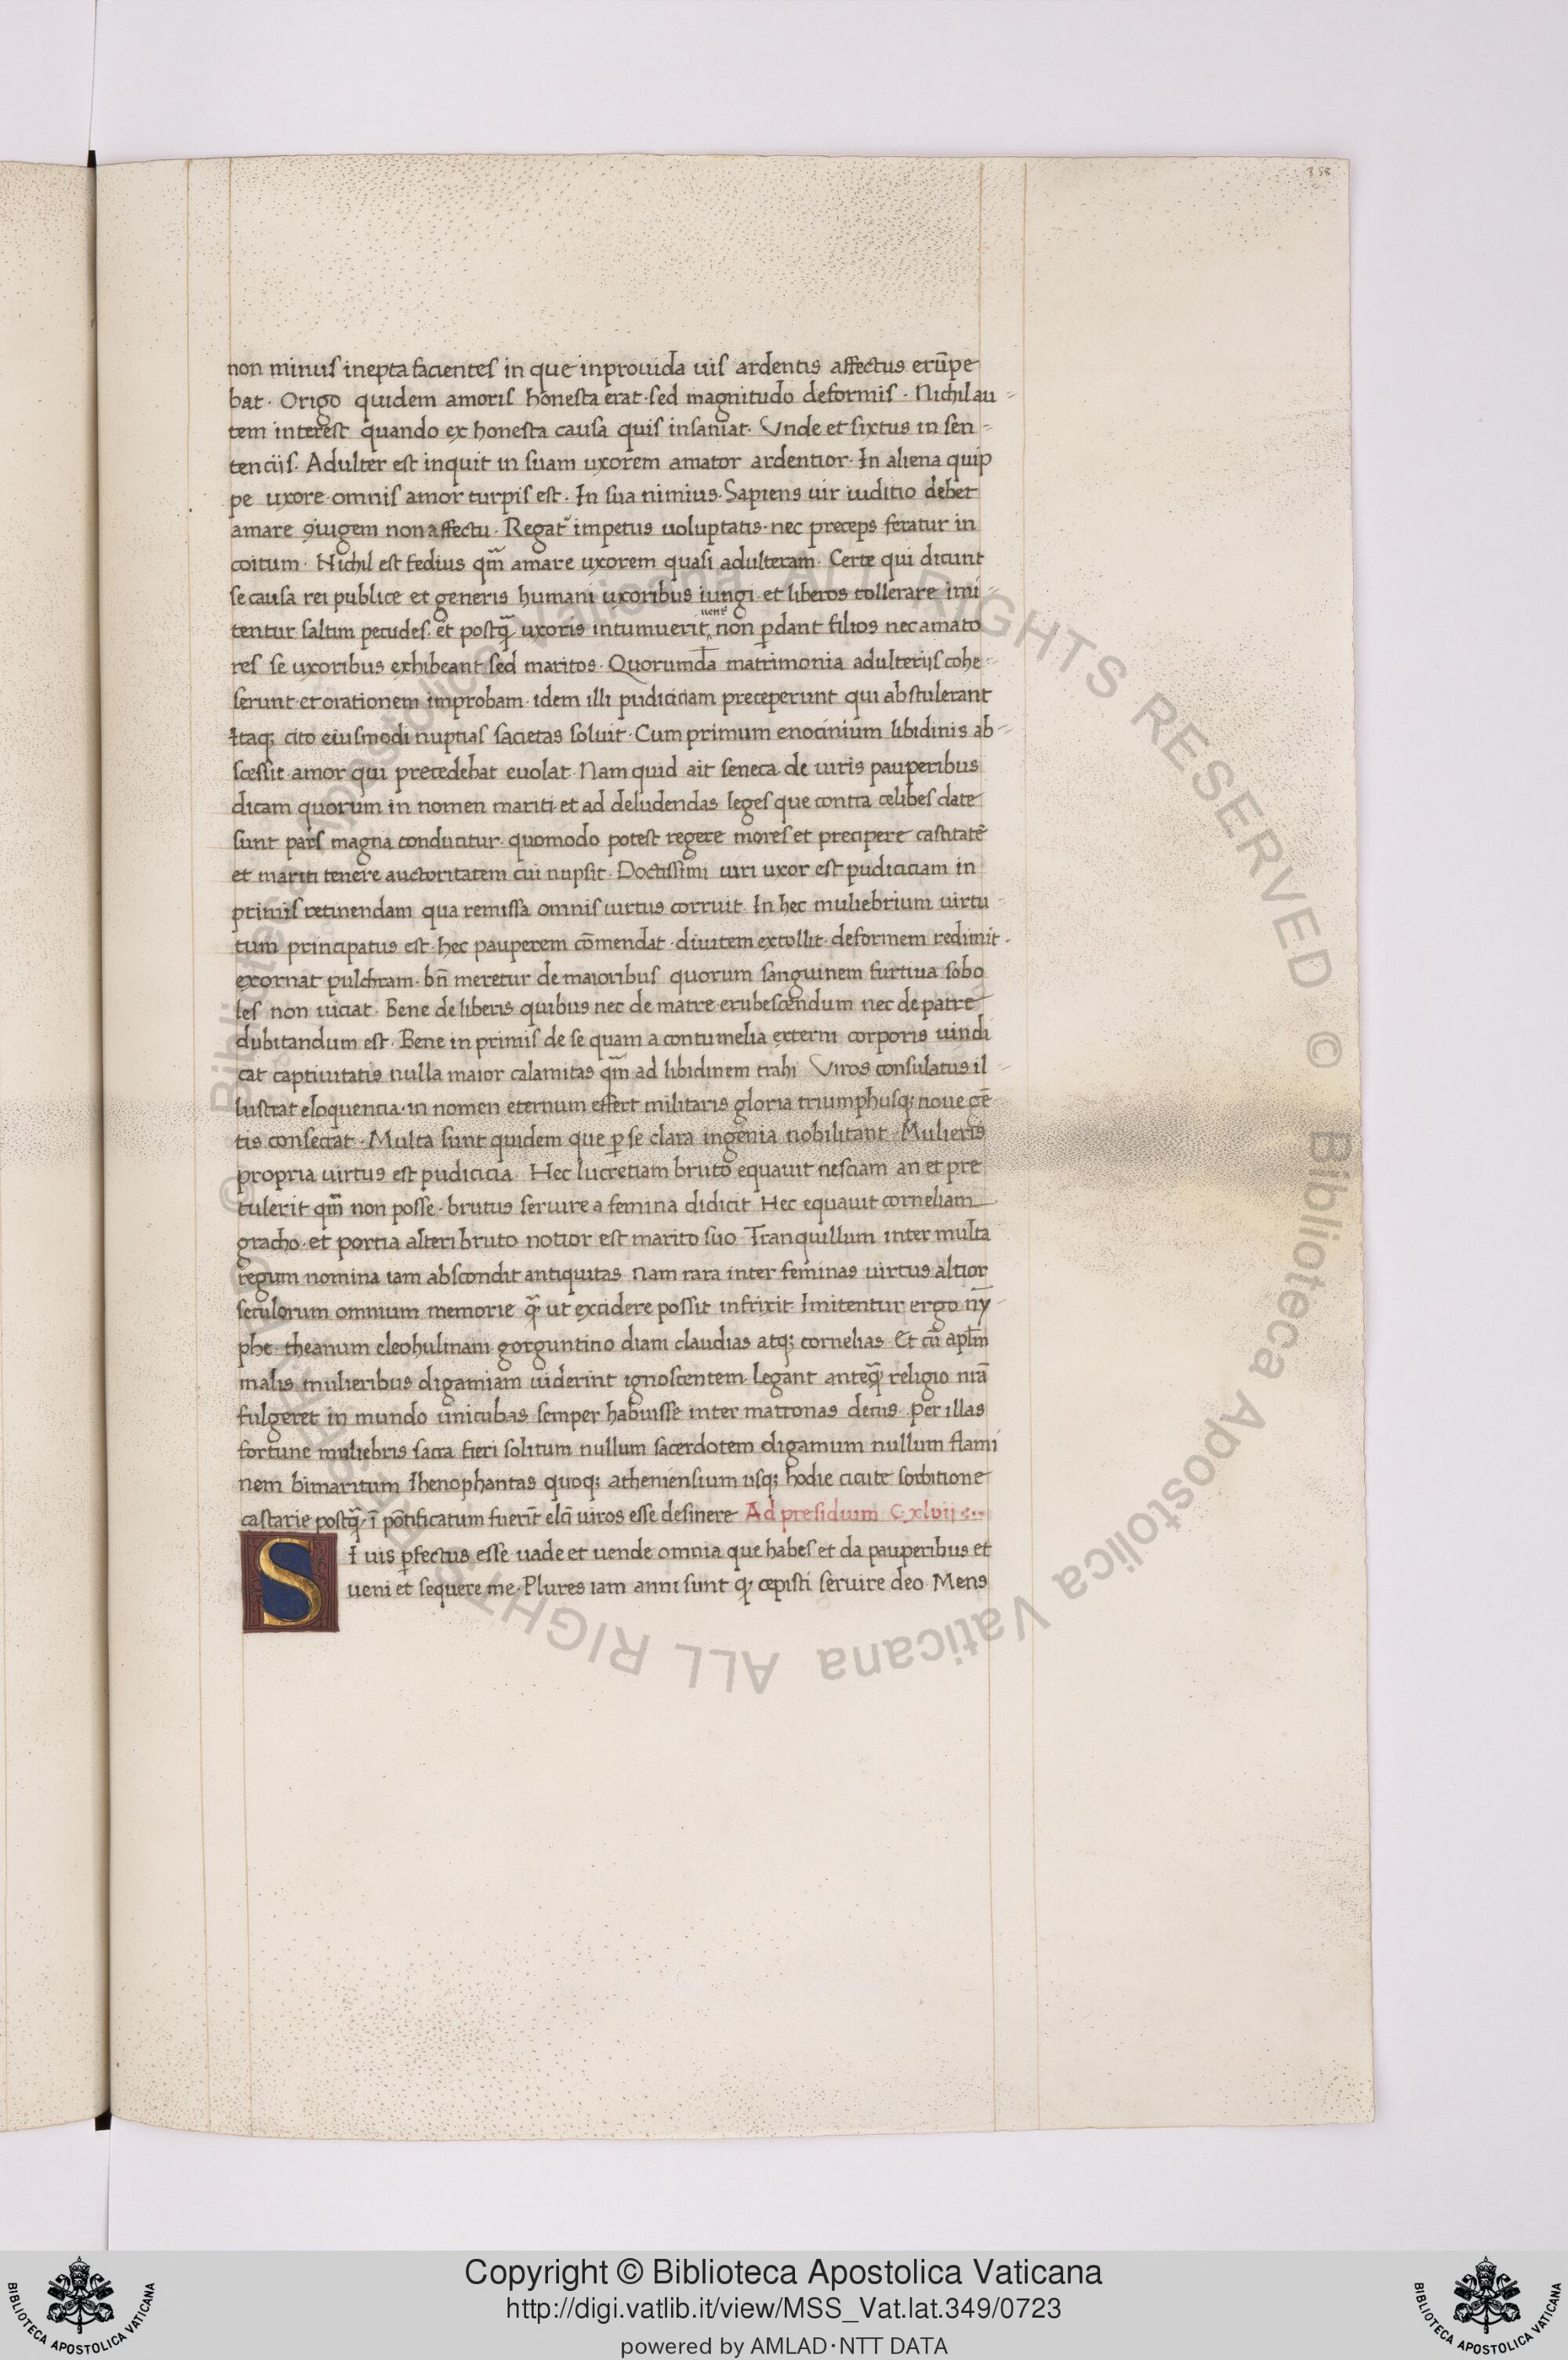 358
non minus inepta facientes in que inprouida uis ardentis affectus erūpe
bat · Origo quidem amoris honesta erat · sed magnitudo deformis · Nichil au-
tem interest quando ex honesta causa quis insaniat · Vnde et sixtus in sen-
tenciis · Adulter est inquit in suam uxorem amator ardentior · In aliena quip
pe uxore omnis amor turpis est · In sua nimius · Sapiens uir iuditio debet
amare ꝯiugem non affectu · Regat᷑ impetus uoluptatis · nec preceps feratur in
coitum · Nichil est fedius qm̄ amare uxorem quasi adulteram · Certe qui dicunt
se causa rei publice et generis humani uxoribus iungi · et liberos tollerare imi-
tentur saltim pecudes · et postq̄ uxoris intumuerit uent᷑ non ꝑdant filios nec amato
res se uxoribus exhibeant sed maritos · Quorumdā matrimonia adulteriis cohe-
serunt · et orationem improbam · idem illi pudiciciam preceperunt qui abstulerant
Itaq; cito eiusmodi nuptias sacietas soluit · Cum primum enocinium libidinis ab-
scessit · amor qui precedebat euolat · Nam quid ait seneca · de uiris pauperibus
dicam quorum in nomen mariti · et ad deludendas leges que contra celibes date
sunt pars magna conducitur · quomodo potest regere mores et precipere castitatē
et mariti tenere auctoritatem cui nupsit · Doctissimi uiri uxor est pudiciciam in
primis retinendam qua remissa omnis uirtus corruit · In hec muliebrium uirtu-
tum principatus est · hec pauperem cōmendat · diuitem extollit · deformem redimit ·
exornat pulchram · bn̄ meretur de maioribus quorum sanguinem furtiua sobo
les non uiciat · Bene de liberis quibus nec de matre erubescendum nec de patre
dubitandum est · Bene in primis de se quam a contumelia externi corporis uindi
cat captiuitatis nulla maior calamitas qm̄ ad libidinem trahi Viros consulatus il-
lustrat eloquentia · in nomen eternum effert militaris gloria triumphusq; noue gē
tis consecrat · Multa sunt quidem que ꝑ se clara ingenia nobilitant · Mulieris
propria uirtus est pudicicia · Hec lucretiam bruto equauit nesciam an et pre
tulerit qm̄ non posse · brutus seruire a femina didicit Hec equauit corneliam
gracho · et portia alteri bruto notior est marito suo Tranquillum inter multa
regum nomina iam abscondit antiquitas · Nam rara inter feminas uirtus altior
seculorum omnium memorie q̄ ut excidere possit infrixit · Imitentur ergo ny-
phe · theanum cleohulinam gorguntino diam claudias atq; cornelias · Et cū apl̄m
malis mulieribus digamiam uiderint ignoscentem · legant anteq̄ religio nr̄a
fulgeret in mundo unicubas semper habuisse inter matronas decus · Per illas
fortune muliebris sacra fieri solitum nullum sacerdotem digamum nullum flami
nem bimaritum Ihenophantas quoq; atheniensium usq; hodie cicute sorbitione
castarie postq̄ ī pōtificatum fuerīt elc̄i uiros esse desinere Ad presidium C·xlvii
SI uis ꝑfectus esse uade et uende omnia que habes et da pauperibus et
ueni et sequere me · Plures iam anni sunt q̄ cepisti seruire deo · Mens
Copyright © Biblioteca Apostolica Vaticana
http://digi.vatlib.it/view/MSS_Vat.lat.349/0723
powered by AMLAD · NTT DATA
BIBLIOTECA APOSTOLICA VATICANA
BIBLIOTECA APOSTOLICA VATICANA
© Biblioteca Apostolica Vaticana ALL RIGHTS RESERVED © Biblioteca Apostolica Vaticana ALL RIGHTS